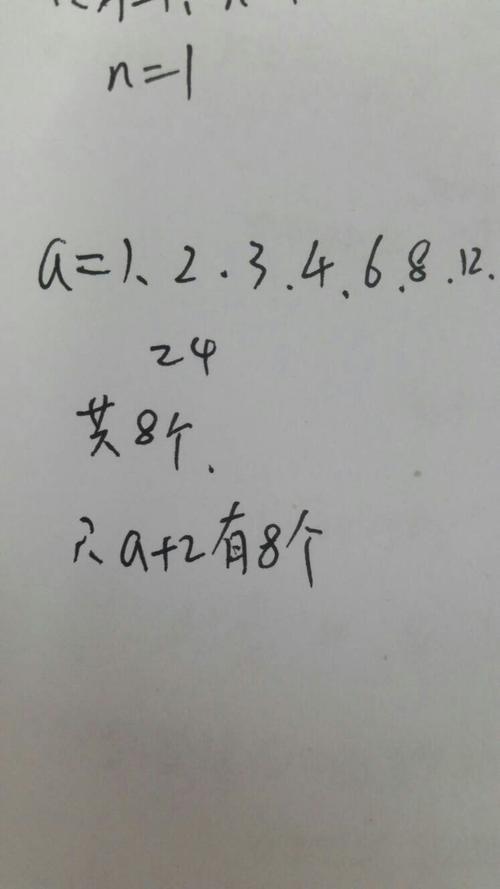 n=1
a=1、2.3.4.6.8.12.
24
共8个.
∴a+2有8个